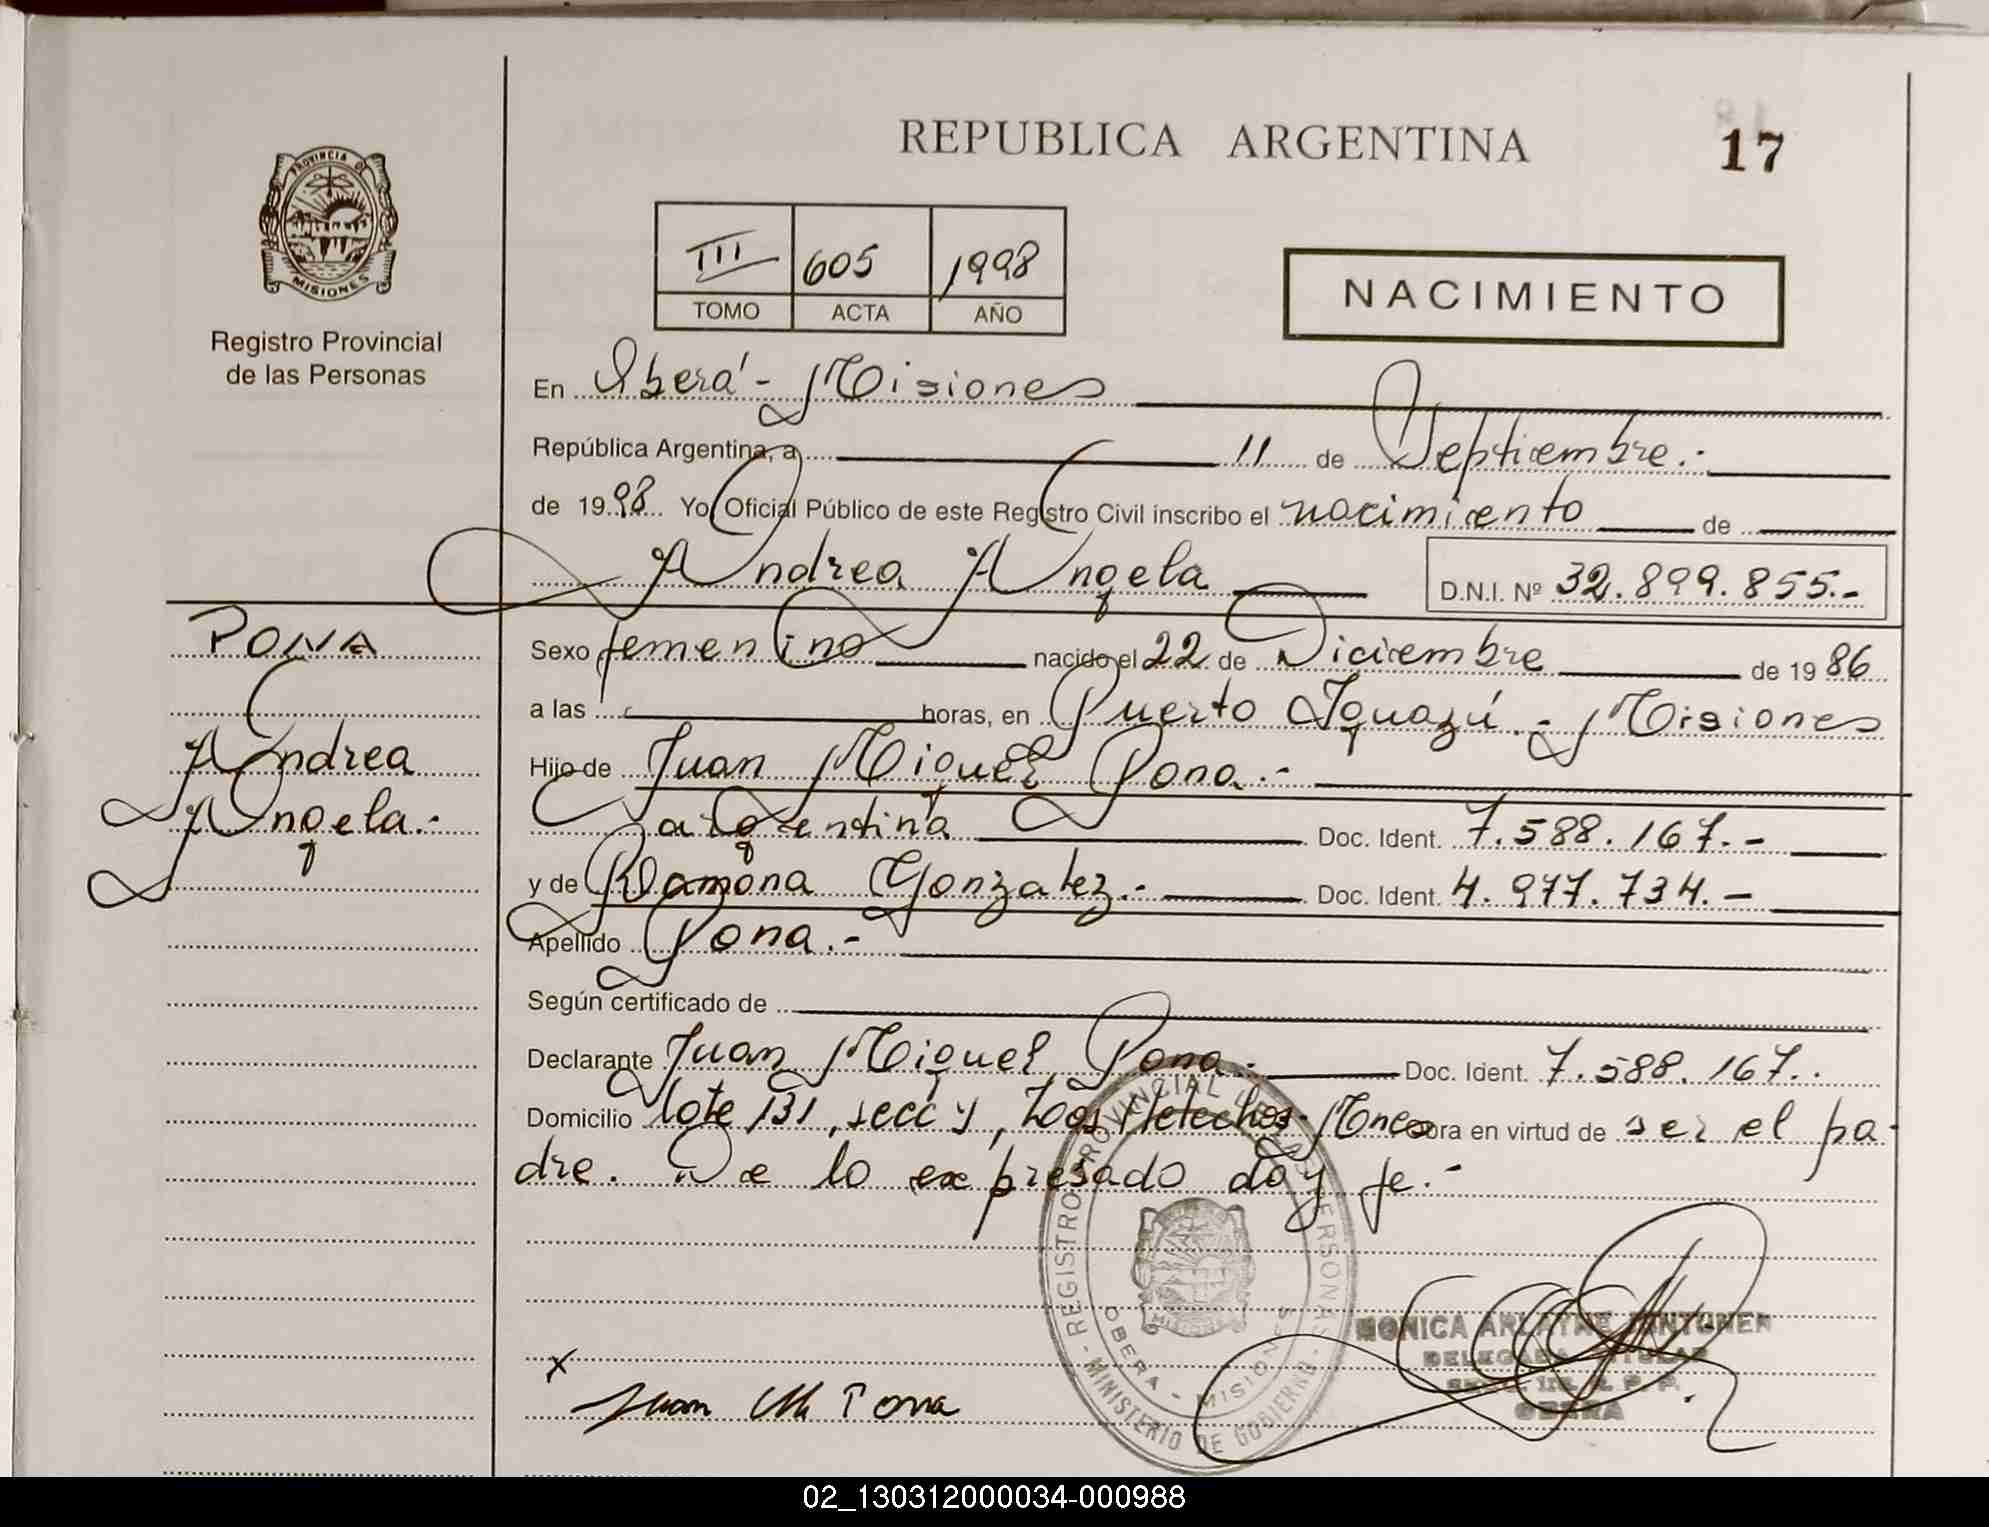 REPUBLICA ARGENTINA
17
PROVINCIA DE
MISIONES
Registro Provincial
de las Personas
III 605 1998
TOMO ACTA AÑO
NACIMIENTO
En Oberá - Misiones
República Argentina, a 11 de Septiembre.-
de 1998 Yo Oficial Público de este Registro Civil inscribo el nacimiento de
Andrea Angela
D.N.I. Nº 32.899.855.-
PONA
Andrea
Angela.-
Sexo femenino nacido el 22 de Diciembre de 1986
a las horas, en Puerto Iguazú.- Misiones
Hijo de Juan Miguel Pona.-
argentina Doc. Ident. 7.588.167.-
y de Ramona Gonzalez.- Doc. Ident. 4.977.734.-
Apellido Pona.-
Según certificado de
Declarante Juan Miguel Pona.- Doc. Ident. 7.588.167..
Domicilio lote 131, secc y, Helechos- obra en virtud de ser el pa-
dre. De lo expresado doy fe.-
REGISTRO PROVINCIAL DE LAS PERSONAS
MINISTERIO DE GOBIERNO
OBERA - MISIONES
MONICA
DELEGADA TITULAR
OBERA
x
Juan M Pona
02_130312000034-000988